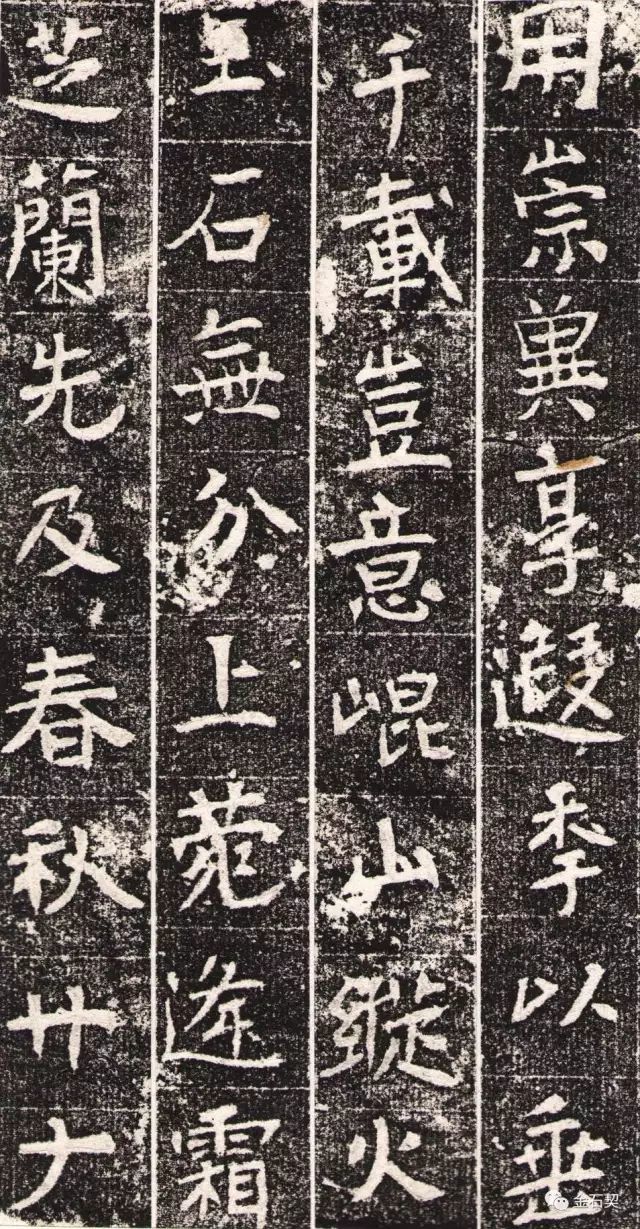 用崇冀享遐季以垂
千載豈意崐山縱火
玉石無分上菀逄霜
芝蘭先及春秋廿六
金石契